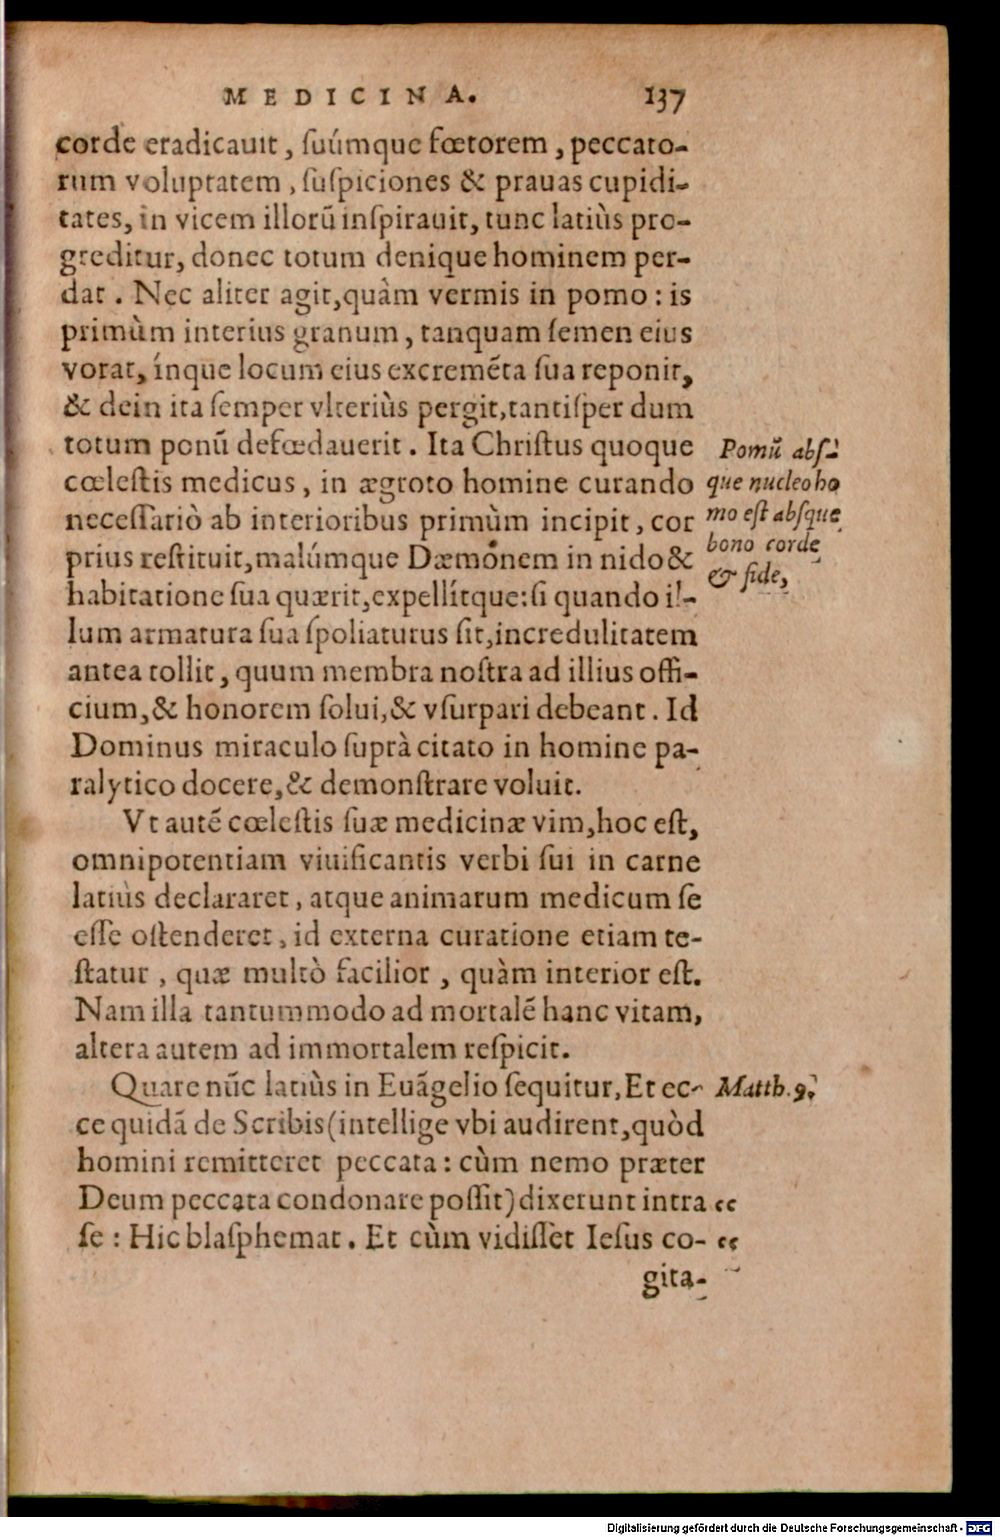 MEDICINA. 137
corde eradicauit, ſuúmque fœtorem, peccato-
rum voluptatem, ſuſpiciones & prauas cupidi-
tates, in vicem illorũ inſpirauit, tunc latiùs pro-
greditur, donec totum denique hominem per-
dat. Nec aliter agit, quàm vermis in pomo: is
primùm interius granum, tanquam ſemen eius
vorat, ínque locum eius excremẽta ſua reponit,
& dein ita ſemper vlteriùs pergit, tantiſper dum
totum pomũ defœdauerit. Ita Chriſtus quoque
cœleſtis medicus, in ægroto homine curando
neceſſariò ab interioribus primùm incipit, cor
prius reſtituit, malúmque Dæmonem in nido &
habitatione ſua quærit, expellítque: ſi quando il-
lum armatura ſua ſpoliaturus ſit, incredulitatem
antea tollit, quum membra noſtra ad illius offi-
cium, & honorem ſolui, & vſurpari debeant. Id
Dominus miraculo ſuprà citato in homine pa-
ralytico docere, & demonſtrare voluit.
Vt autẽ cœleſtis ſuæ medicinæ vim, hoc eſt,
omnipotentiam viuificantis verbi ſui in carne
latiùs declararet, atque animarum medicum ſe
eſſe oſtenderet, id externa curatione etiam te-
ſtatur, quæ multò facilior, quàm interior eſt.
Nam illa tantummodo ad mortalẽ hanc vitam,
altera autem ad immortalem reſpicit.
Quare nũc latiùs in Euãgelio ſequitur, Et ec-
ce quidã de Scribis (intellige vbi audirent, quòd
homini remitteret peccata: cùm nemo præter
Deum peccata condonare poſſit) dixerunt intra
ſe: Hic blaſphemat. Et cùm vidiſſet Ieſus co-
gita-
Pomũ abſ-
que nucleo ho
mo eſt abſque
bono corde
& fide,
Matth. 9.
“
“
Digitalisierung gefördert durch die Deutsche Forschungsgemeinschaft - DFG